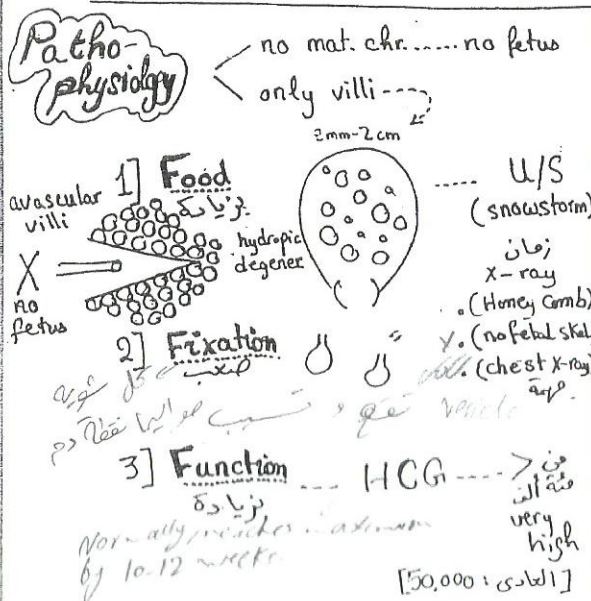 Patho-
physiology
no mat. chr. ..... no fetus
only villi ----
2mm-2cm
1] Food
بزيادة
avascular
villi
hydropic
degener
X
no
fetus
U/S
(snowstorm)
زمان
X-ray
.(Honey Comb)
.(no fetal skel
.(chest X-ray)
مهمة
2] Fixation
صعب
كل شوية
تقع و تسيب حواليها نقطة دم
vesicle
3] Function ... HCG ---- >
بزيادة
من
مئة ألف
very
high
Normally reaches maximum
by 10-12 weeks.
[العادى : 50,000]